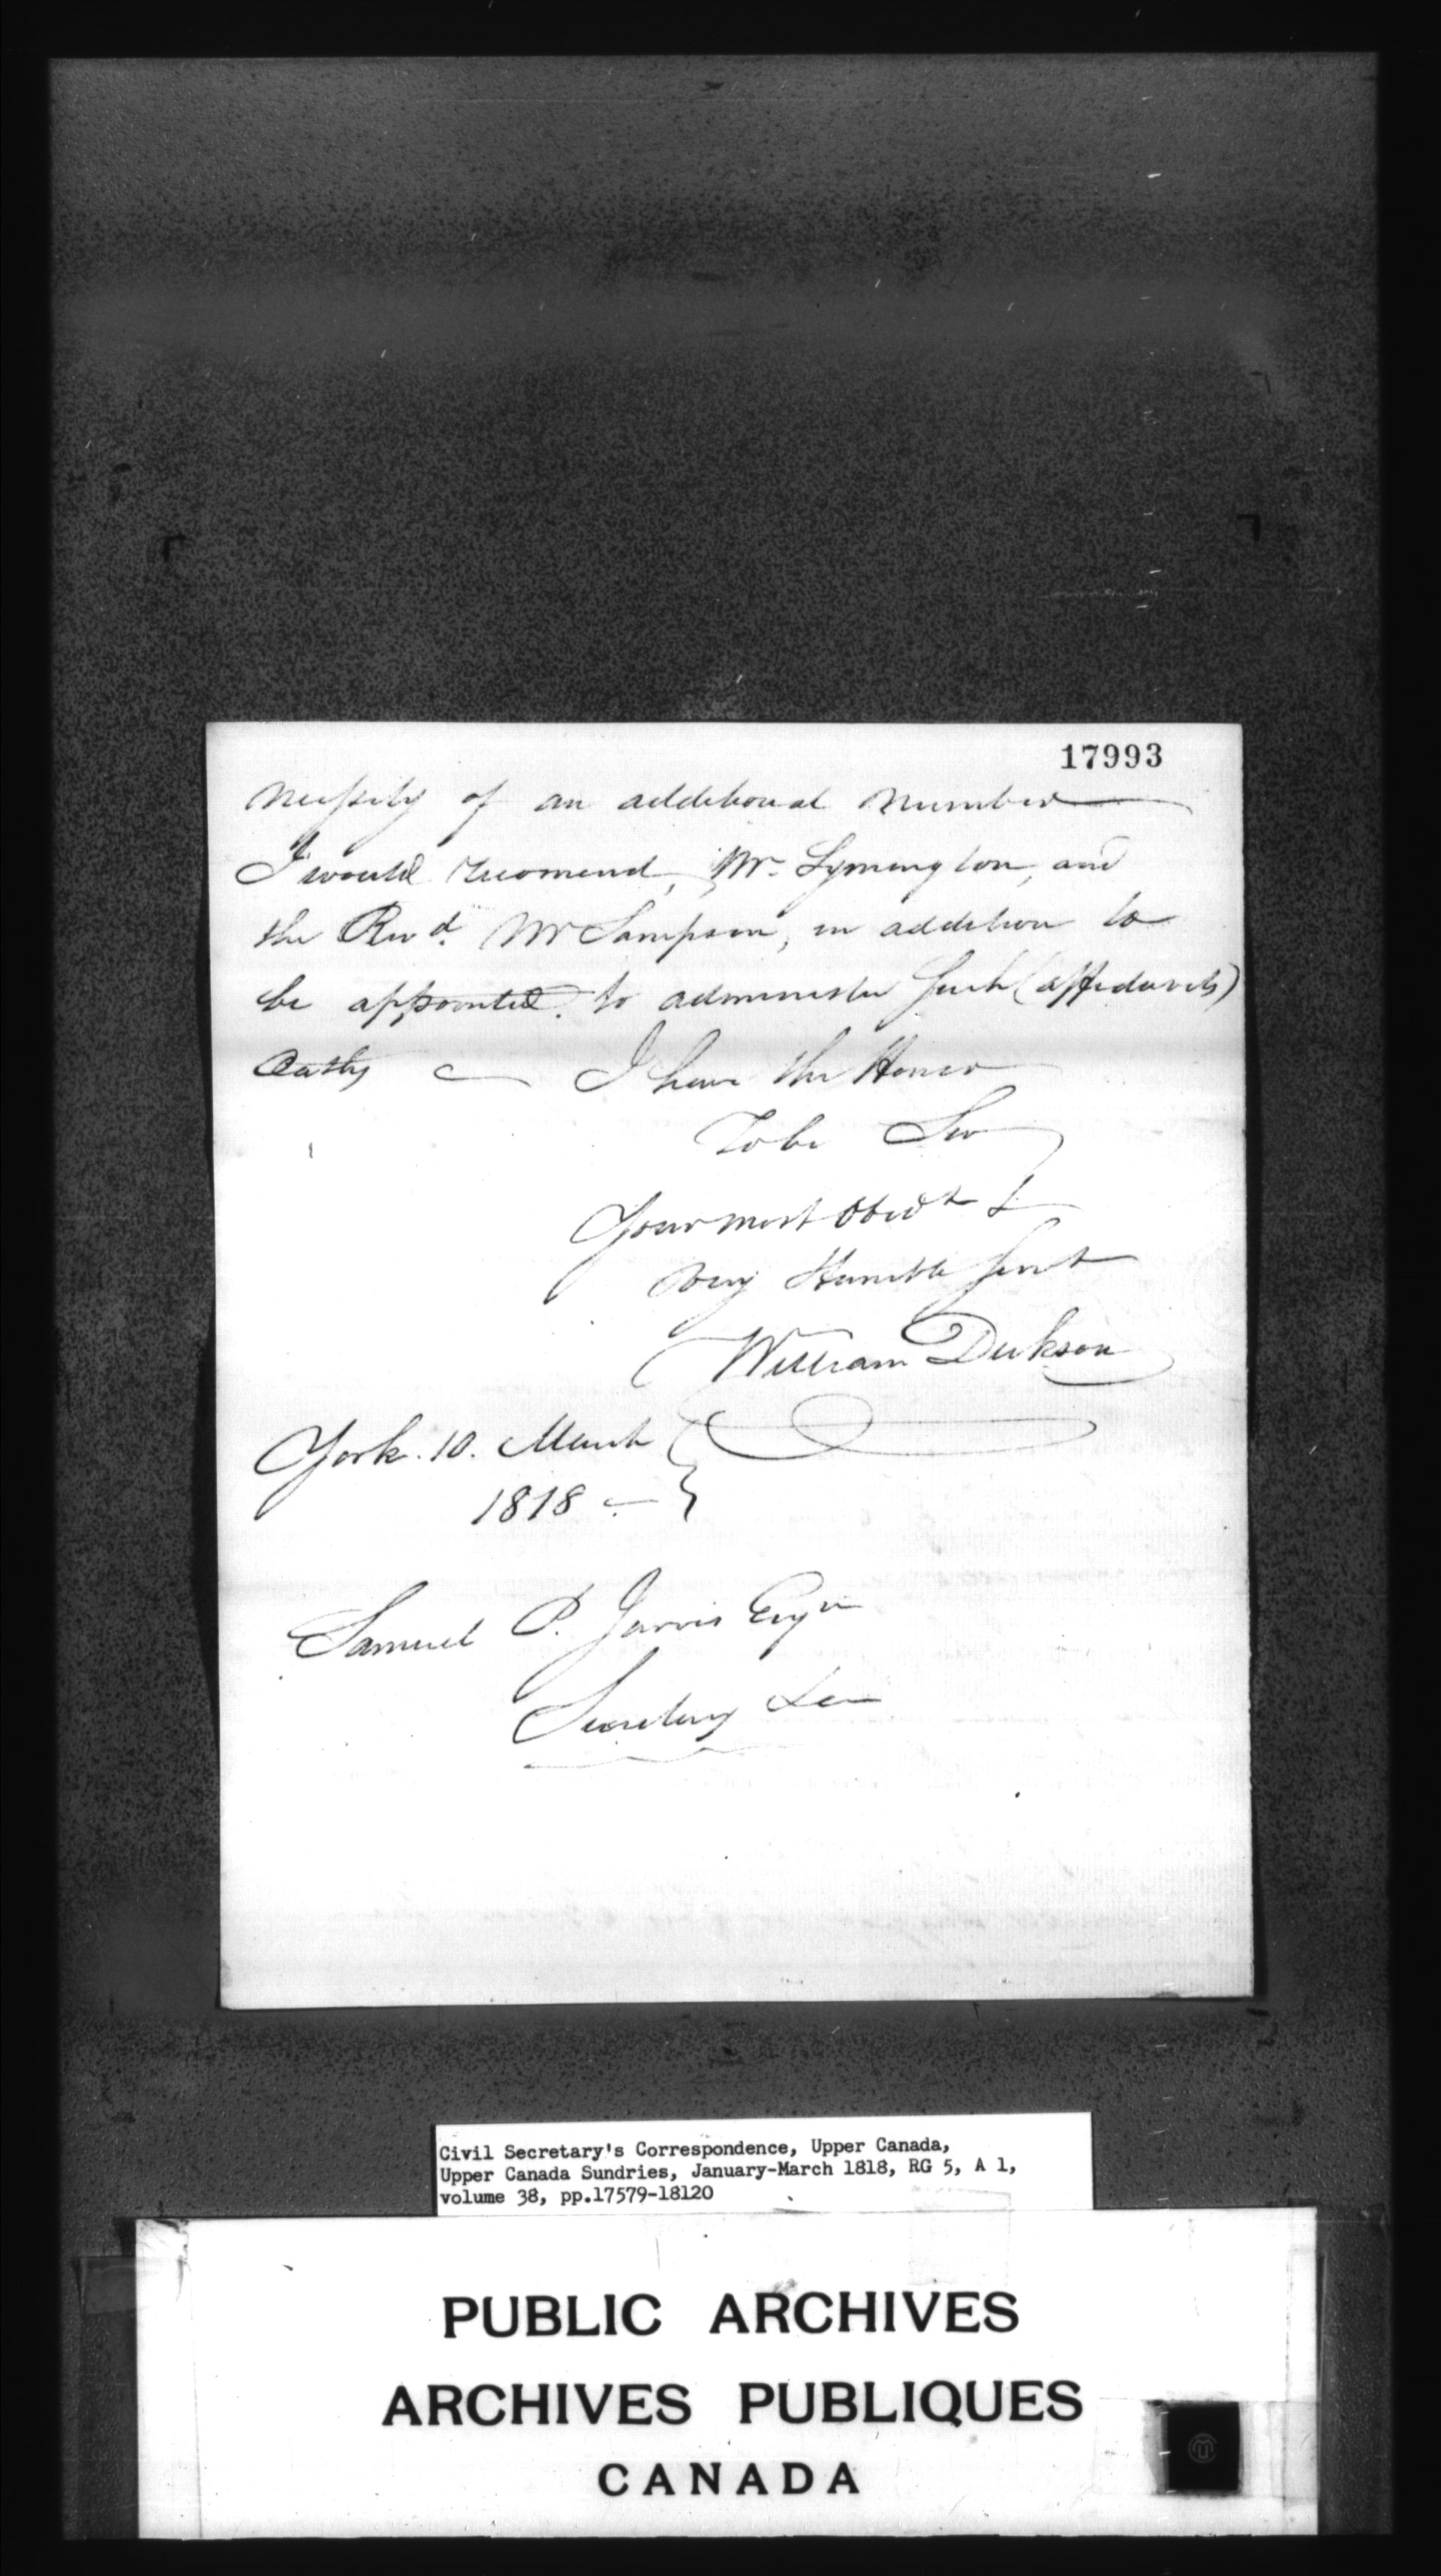 17993
necessity of an additional number
I would recomend, Mr. Symington, and
the Revd. Mr Sampson, in addition to
be appointed. to administer such (affidavits)
Oaths — I have the Honor
To be Sir
Your most Obedt &
very Humble Servt
William Dickson
York. 10. March
1818 —
Samuel P. Jarvis Esqre
Secretary &c
Civil Secretary's Correspondence, Upper Canada,
Upper Canada Sundries, January-March 1818, RG 5, A 1,
volume 38, pp.17579-18120
PUBLIC ARCHIVES
ARCHIVES PUBLIQUES
CANADA